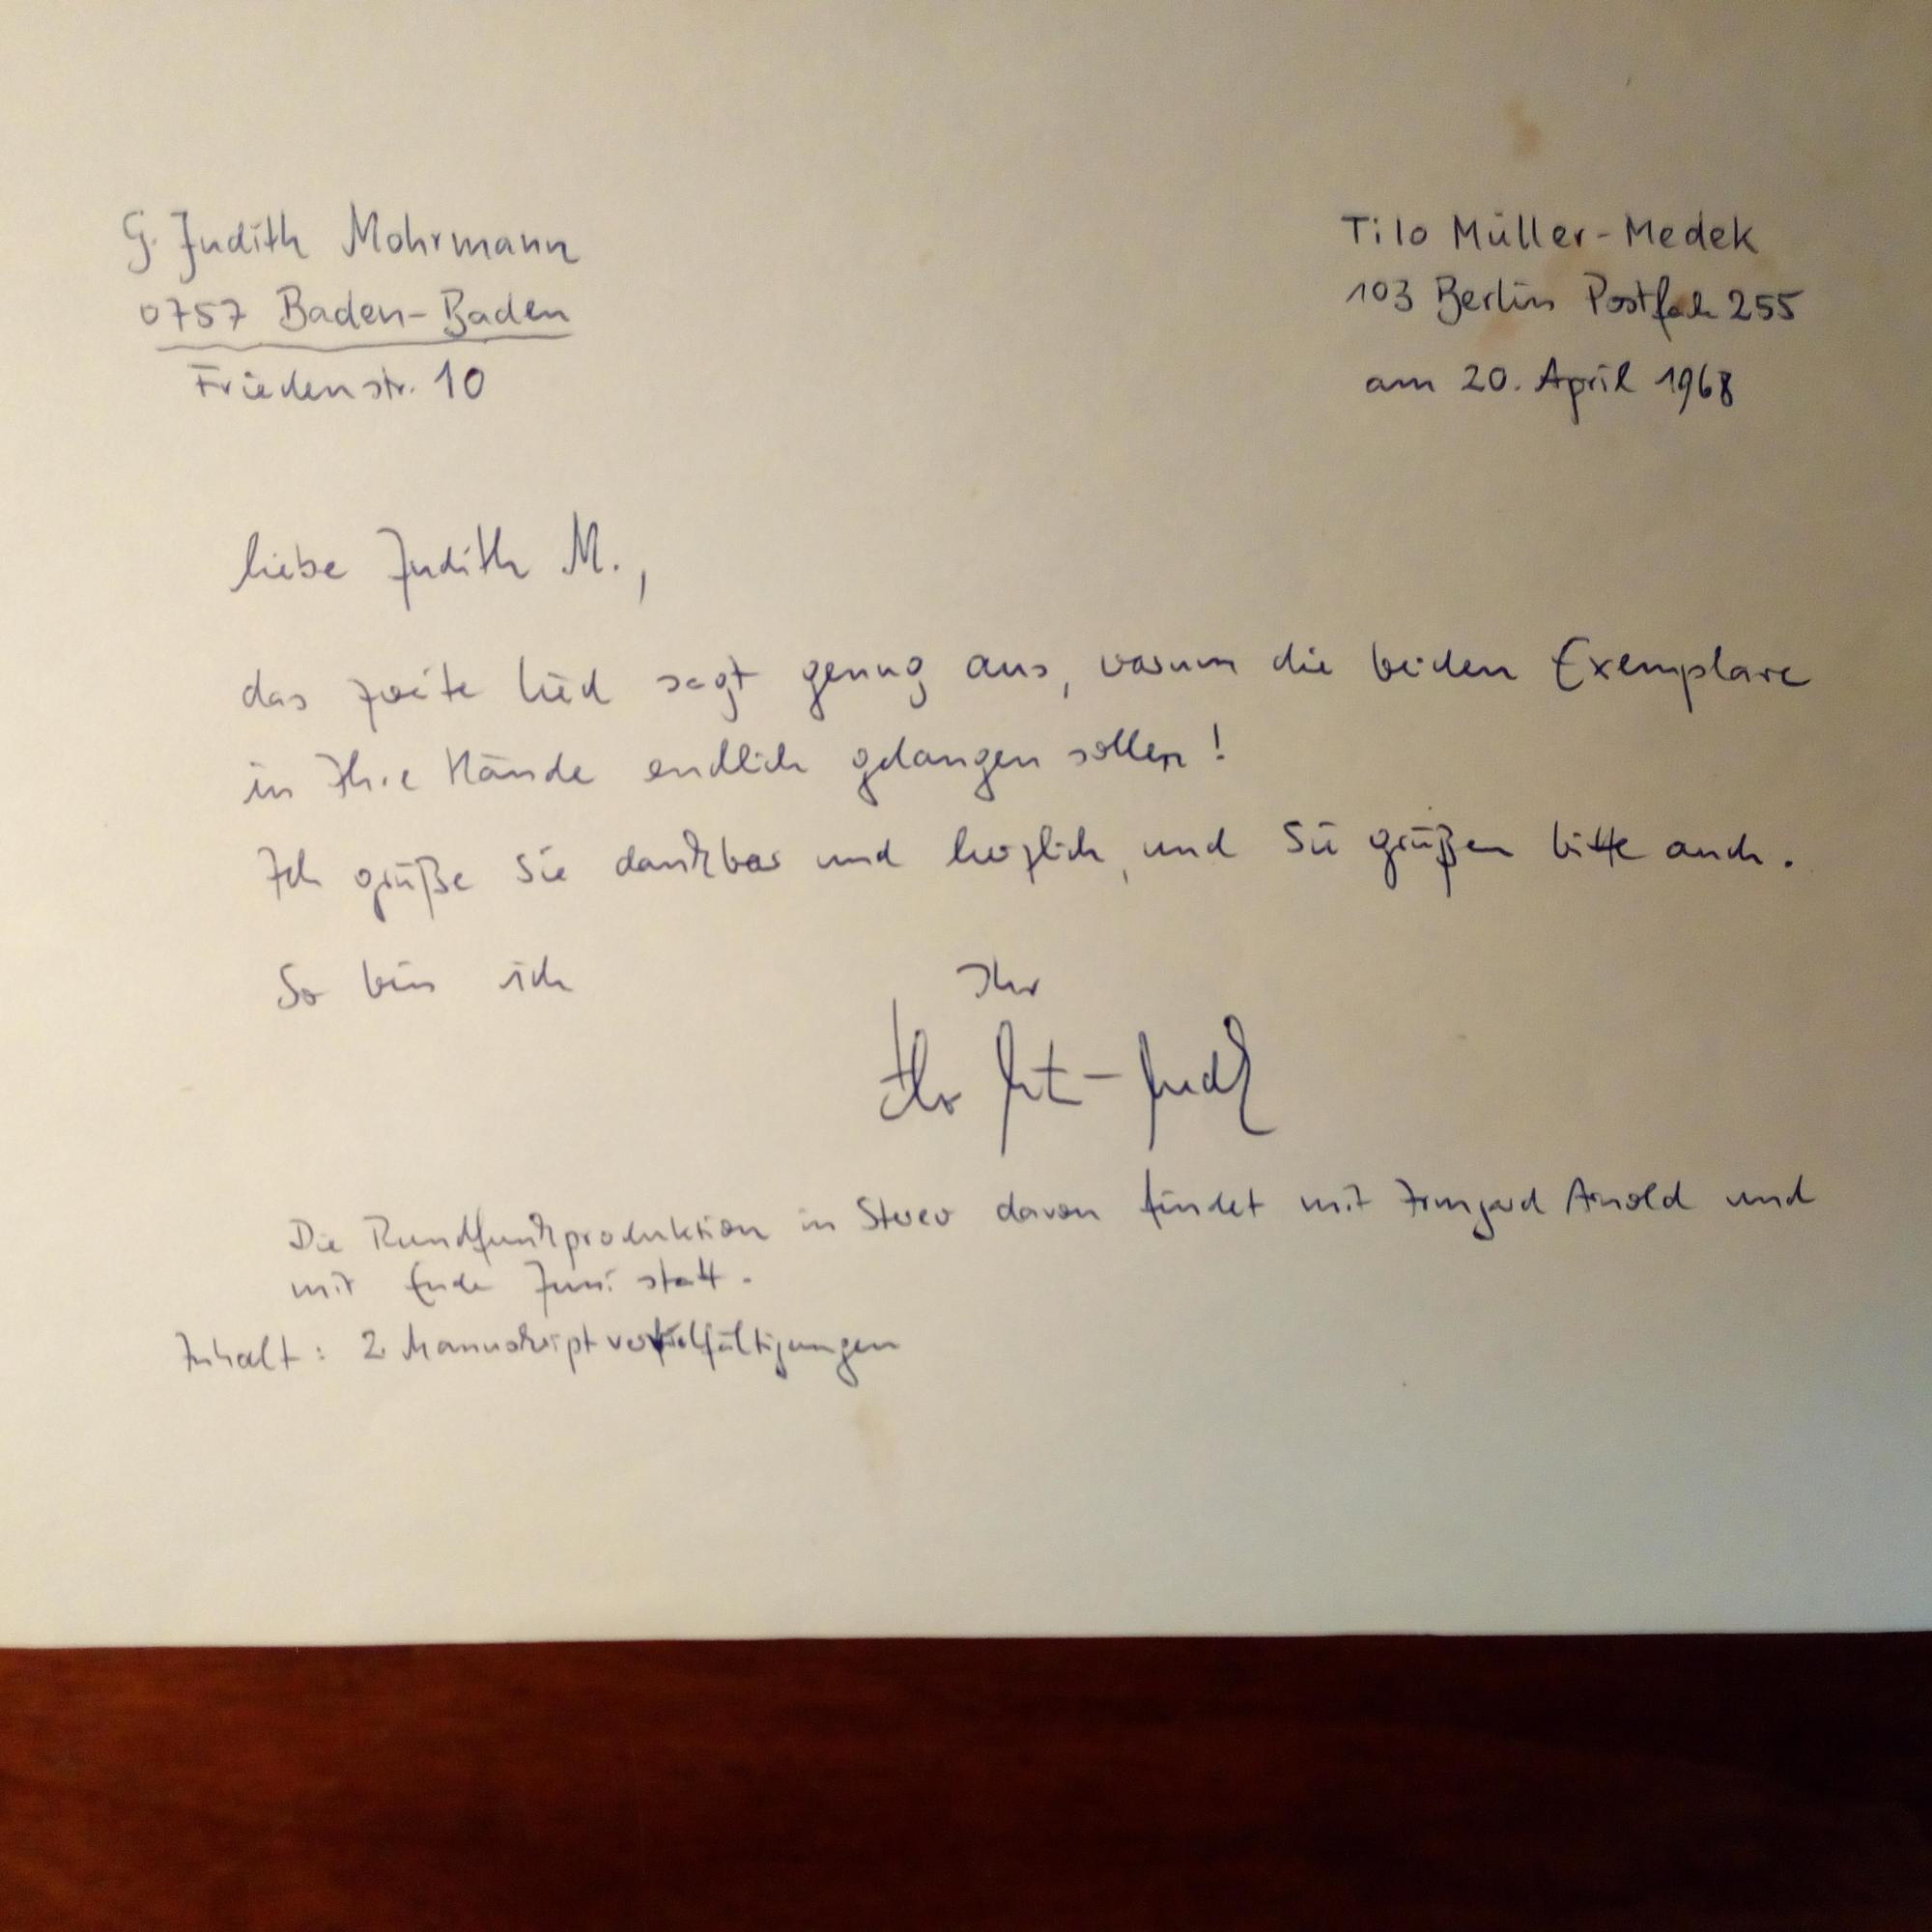 G. Judith Mohrmann
0757 Baden-Baden
Friedenstr. 10
Tilo Müller-Medek
103 Berlin Postfach 255
am 20. April 1968
liebe Judith M.,
das zweite Lied sagt genug aus, warum die beiden Exemplare
in Ihre Hände endlich gelangen sollen!
Ich grüße Sie dankbar und herzlich, und Sie grüßen bitte auch.
So bin ich Ihr
Die Rundfunkproduktion in Stereo davon findet mit Irmgard Arnold und
mir Ende Juni statt.
Inhalt: 2 Manuskriptvervielfältigungen